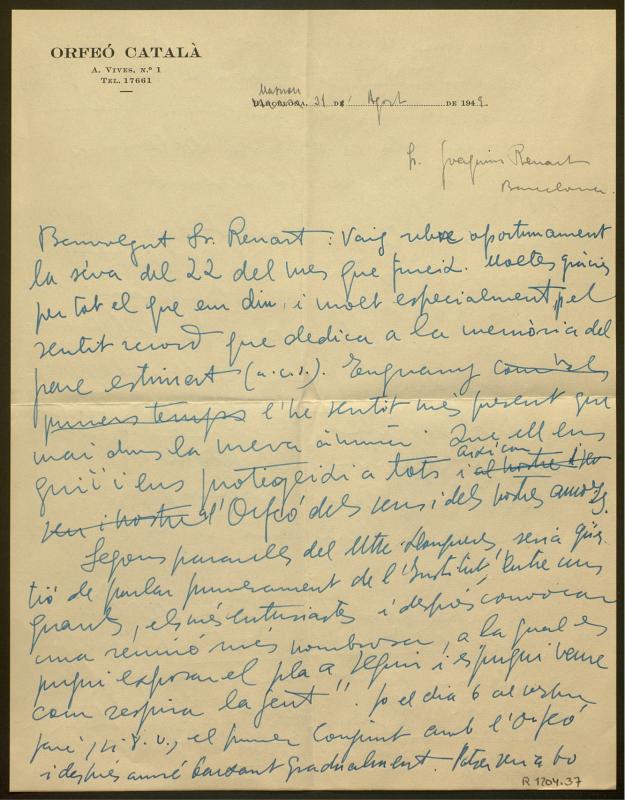 ORFEÓ CATALÀ
A. VIVES, N.º 1
TEL. 17661
Masnou
BARCELONA, 31 DE Agost DE 1949
Sr. Joaquim Renart
Barcelona.
Benvolgut Sr. Renart: Vaig rebre oportunament
la seva del 22 del mes que fineix. Moltes gràcies
per tot el que em diu, i molt especialment pel
sentit record que dedica a la memòria del
pare estimat (a.c.s.). Enguany com els
primers temps l'he sentit més present que
mai dins la meva ànima. Que ell ens
guiï i ens protegeixi a tots i al nostre
així com
seu i nostre a l'Orfeó dels seus i dels nostres amors.
Segons paraules del Mtre. Llongueres, "seria qües-
tió de parlar primerament de l'Institut, entre uns
quants, els més entusiastes i després convocar
una reunió més nombrosa, a la qual es
pugui exposar el pla a seguir i es pugui veure
com respira la gent". Jo el dia 6 al vespre
faré, si D. v., el primer conjunt amb l'Orfeó
i després aniré baixant gradualment. Potser en a bo
R 1204.37